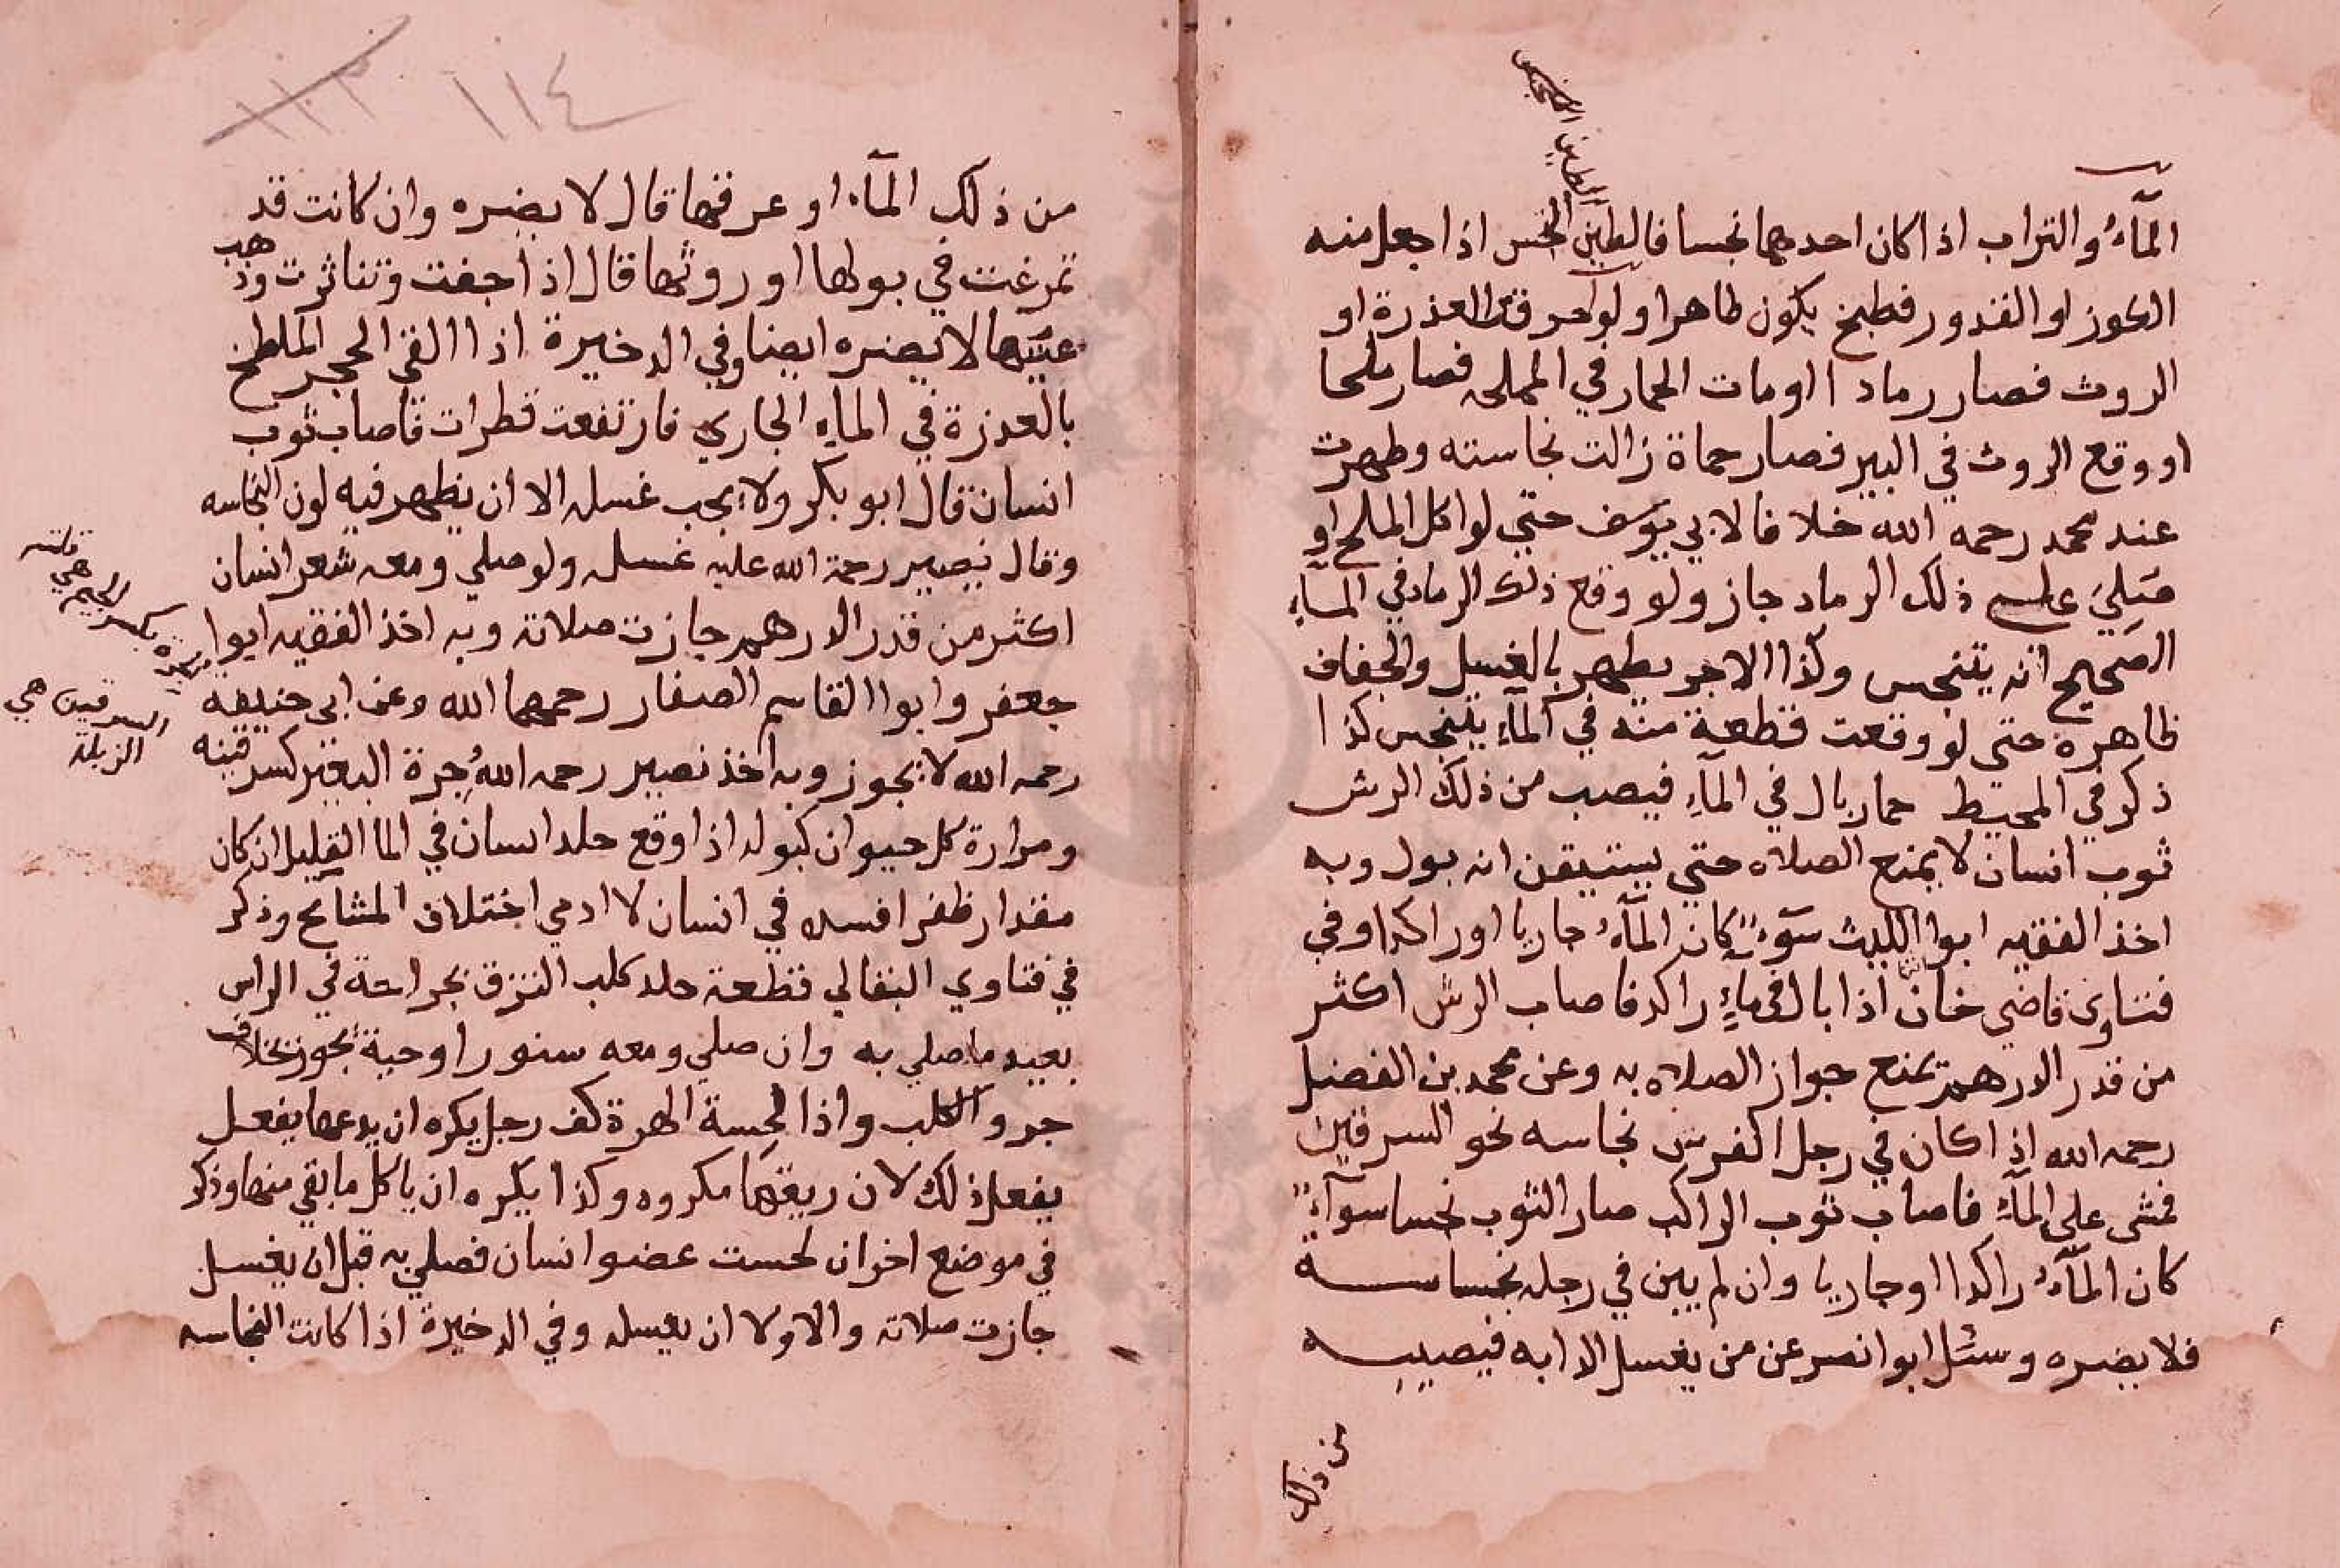 الطين النجس
المآءُ والتراب اذا كان احدهما نجسا فالطين النجس اذا جعل منه
الكوز او القدور فطبخ يكون طاهرا ولو احرقت العذرة او
الروث فصار رمادا او مات الحمار في المملحه فصار ملحا
او وقع الروث في البير فصار حماة زالت نجاسته وطهرت
عند محمد رحمه الله خلافا لابي يوسف حتي لو اكل الملح او
صَلِيَ علي ذلك الرماد جاز ولو وقع ذلك الرماد في المآءِ
الصَحيح انه يتنجس وكذا الاجر يطهر بالغسل والجفاف
ظاهرة حتي لو وقعت قطعة منه في المآءِ يتنجس كذا
ذكر في المحيط حمار بال في المآءِ فيصب من ذلك الرش
ثوب انسان لا يمنع الصلاه حتي يستيقن انه بول وبه
اخذ الفقيه ابوا الليث سَوآءً كان المآءُ جاريا او راكدا وفي
فتاوي قاضي خان اذا بال في مآءٍ راكد فاصاب الرش اكثر
من قدر الدرهم يمنع جواز الصلاه به وعن محمد بن الفضل
رحمه الله اذا كان في رجل الفرس نجاسه نحو السرقين
فمشي علي المآءِ فاصاب ثوب الراكب صار الثوب نجسا سوآءً
كان المآءُ راكدا او جاريا وان لم يبن في رجله نجاسة
فلا يضره وسئل ابوا نصر عن من يغسل الدابه فيصيبه
من ذلك
١١٣ ١١٤
من ذلك المآء او عرقها قال لا يضره وان كانت قد
تمرغت في بولها او روثها قال اذا جفت وتناثرت وذهب
عينها لا يضره ايضا وفي الدخيرة اذا القي الحجر الملطخ
بالعذرة في المآءِ الجاري فارتفعت قطرات فاصاب ثوب
انسان قال ابو بكر ولا يجب غسله الا ان يظهر فيه لون النجاسه
وقال نصير رحمة الله عليه غسله ولو صلي ومعه شعر انسان
اكثر من قدر الدرهم جازت صلاته وبه اخذ الفقيه ابوا
جعفر وابوا القاسم الصفار رحمهما الله وعن ابي حنيفه
رحمه الله لا يجوز وبه اخذ نصير رحمه الله جِرة البعير كسرقينه
ومرارة كل حيوان كبوله اذا وقع جلد انسان في الما القليل ان كان
مقدار ظفر افسده في انسان لا ادمي اختلاف المشايخ وذكر
في فتاوي البقالي قطعة جلد كلب التزق بجراحة في الراس
يعيد ما صلي به وان صلي ومعه سنورا وحية يجوز بخلاف
جرو الكلب واذا لحسة الهرة كف رجل يكره ان يدعها يفعل
يفعل ذلك لان ريقها مكروه وكذا يكره ان ياكل ما بقي منها وذكر
في موضع اخر ان لحست عضو انسان فصلي به قبل ان يغسل
جازت صلاته والاولا ان يغسله وفي الدخيرة اذا كانت النجاسه
بكسر الجيم هي
السرقين هي
الزبلة